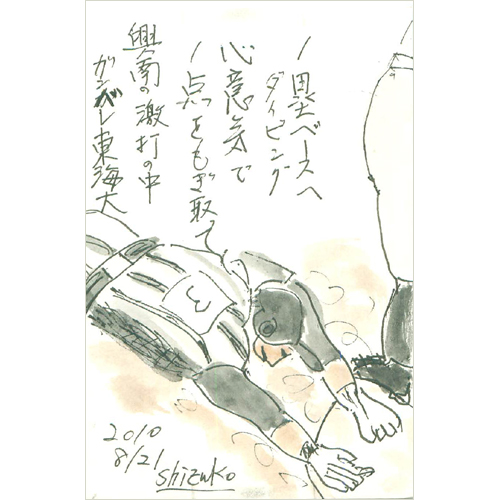 1塁ベースへ
ダイビング
心意気で
1点をもぎ取って
興南の激打の中
ガンバレ東海大
3
2010
8/21
Shizuko